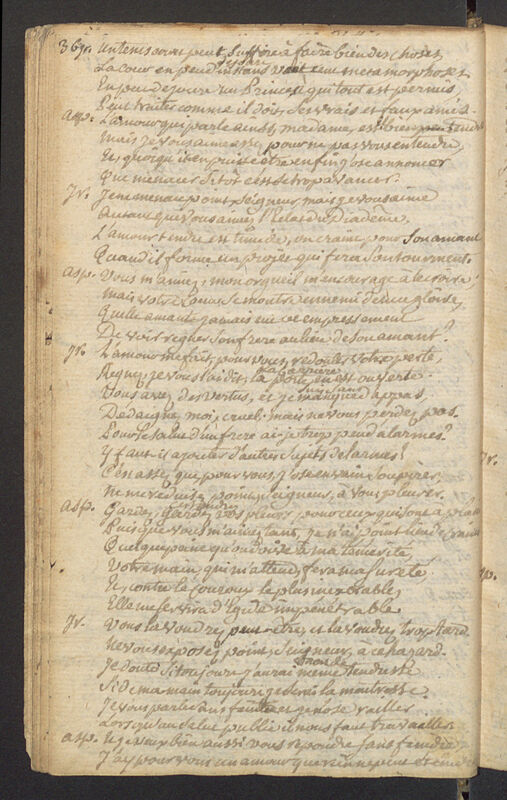 369.
un tems court peut suffire à faire bien des choses
La cour en peu d'instans voit cent metamorphoses
En peu de jours un Prince à qui tout est permis
Peut traiter comme il doit, ses vrais et faux amis.
Asp. L'amour qui parle ainsi, madame, est bien
mais je vous aime assez pour ne pas vous entendre,
Et quoi qu'il en puisse être enfin j'ose annoncer
Que menacer si tôt c'est se trop avancer.
Ir. Je ne menace point seigneur, mais je vous aime
Autant que vous aimez l'Eclat du Diadème.
L'amour tendre est timide, on craint pour son amant
Quand il forme un projet qui fera son tourment
Asp. Vous m'aimez, mon orgueil m'encourage à le croire
mais votre amour se montre ennemi de ma gloire,
Quelle amante jamais eut cet empressement
De voir regner son frere au lieu de son amant?
Ir. L'amour me fait, pour vous, redouter votre perte,
Regnez, je vous l'ai dit, la carriere est ouverte
Vous avez des vertus, et je manque d'appas,
Dédaignez moi, cruel, mais ne vous perdez pas.
Pour le salut d'un frere ai-je trop peu d'alarmes?
Y faut-il ajouter d'autres sujets de larmes?
C'en assez que pour vous, j'ose en vain soupirer,
ne me reduisez point, seigneur, à vous pleurer.
Asp. Gardez, gardez vos pleurs pour ceux qui
Puisque vous m'aimez tant, je n'ai point lieu de
Quelque peine qu'on doive à ma temerité,
Votre main qui m'attend, fera ma sureté
Et, contre le couroux le plus inexorable,
Elle me servira d'Egide impénétrable.
Ir. Vous la voudrez peut-être, et la voudrez trop tard.
Ne vous exposez point, seigneur, à ce hazard.
Je doute si toujours j'aurai même tendresse
Si de ma main toujours je serai la maitresse.
Je vous parle sans feinte et je n'ose railler
Lorsqu'au salut public il nous faut travailler
Asp. Et je veux bien aussi vous repondre sans feindre
J'ay pour vous un amour que rien ne peut